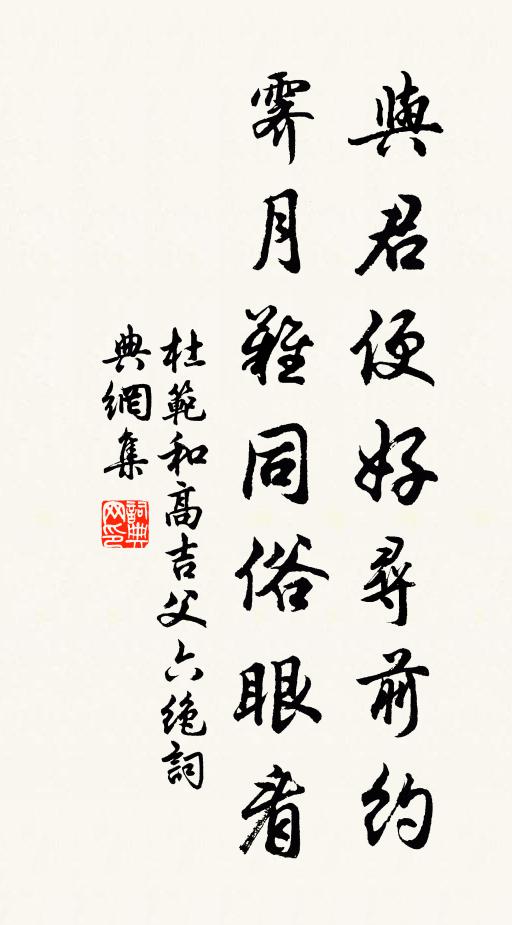 與君便好尋前約
霽月難同俗眼看
杜範和高吉父六絶詞
典網集
詞典
网印